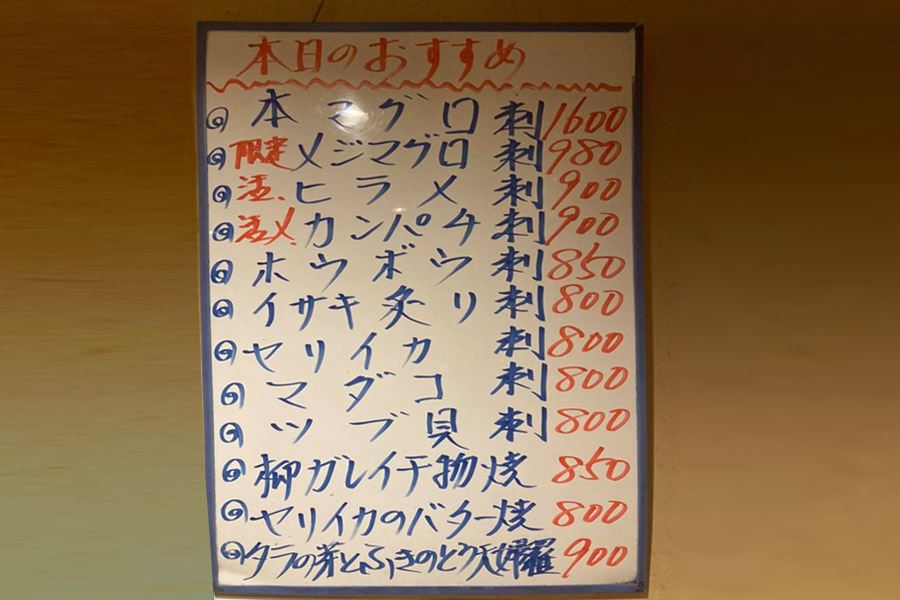 本日のおすすめ
◎ 本マグロ 刺 1600
◎ 限定 メジマグロ 刺 980
◎ 活 ヒラメ 刺 900
◎ 活〆 カンパチ 刺 900
◎ ホウボウ 刺 850
◎ イサキ炙リ 刺 800
◎ ヤリイカ 刺 800
◎ マダコ 刺 800
◎ ツブ貝 刺 800
◎ 柳ガレイ干物焼 850
◎ ヤリイカのバター焼 800
◎ タラの芽とふきのとう天婦羅 900